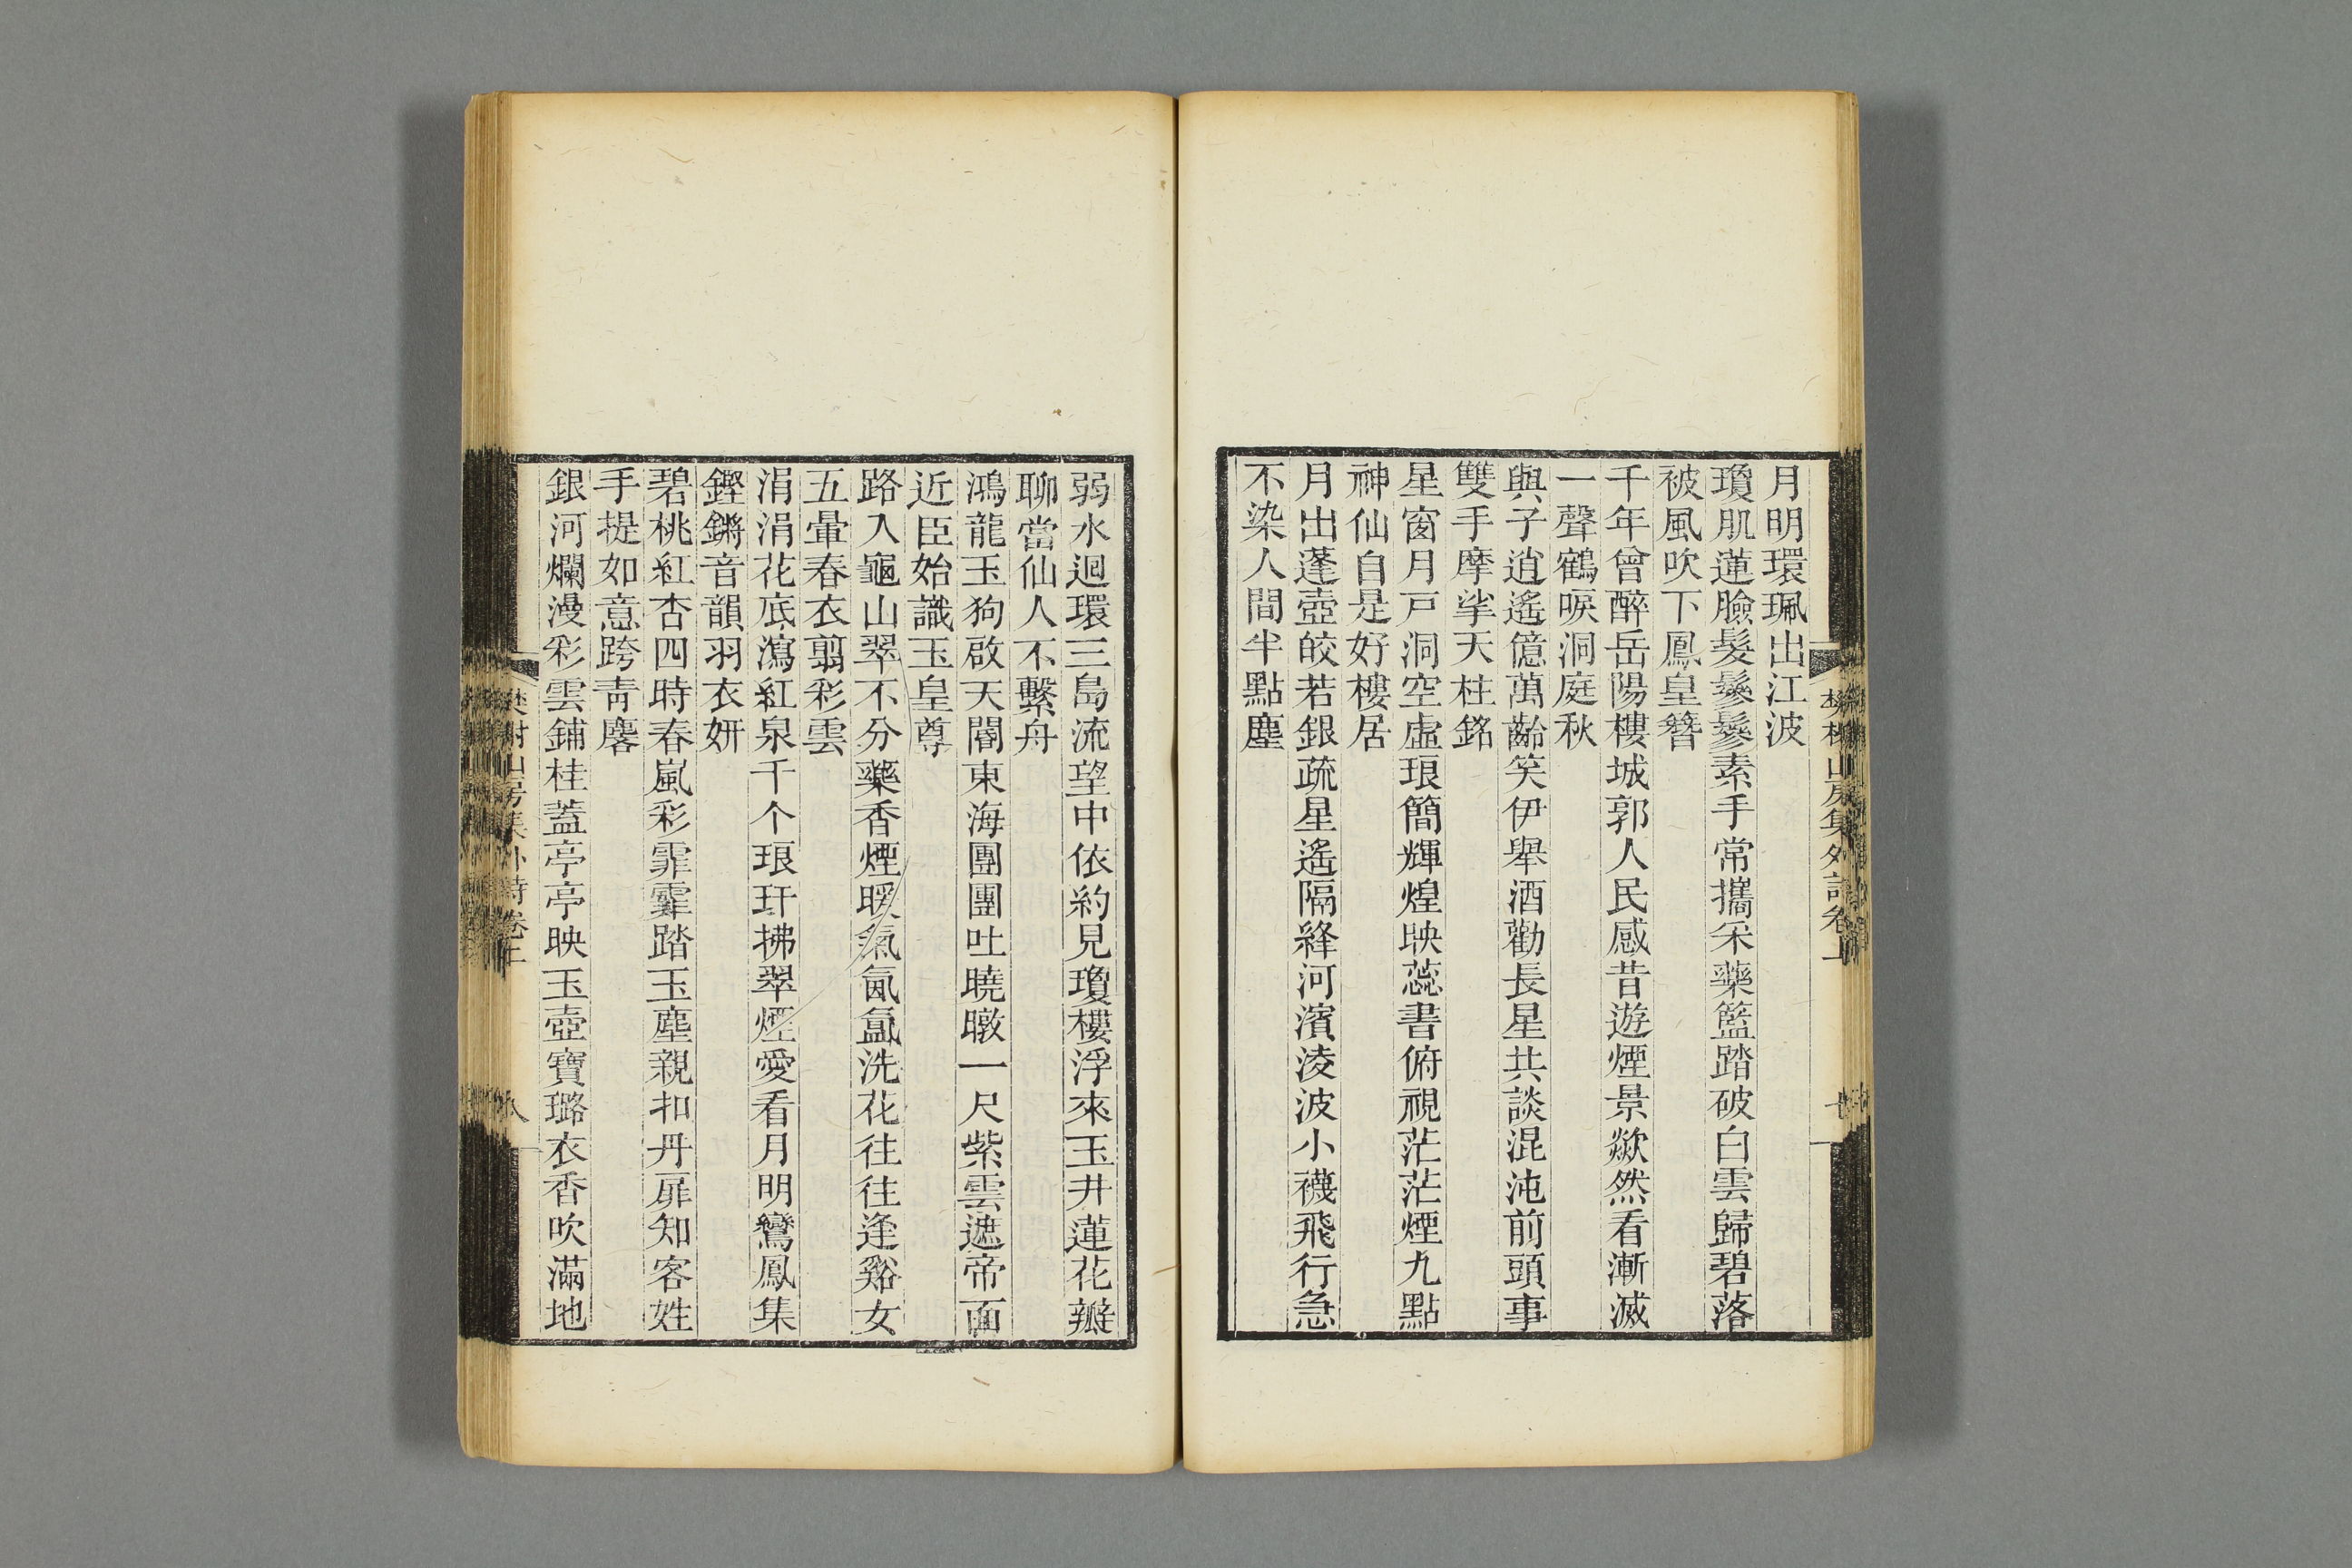 月明環珮出江波
瓊肌蓮臉髮鬖鬖素手常攜采藥籃踏破白雲歸碧落
被風吹下鳳皇簪
千年曾醉岳陽樓城郭人民感昔遊煙景歘然看漸滅
一聲鶴唳洞庭秋
與子逍遙億萬齡笑伊舉酒勸長星共談混沌前頭事
雙手摩挲天柱銘
星窗月戸洞空虛琅簡輝煌映蕊書俯視茫茫煙九點
神仙自是好樓居
月出蓬壺皎若銀疏星遙隔絳河濱淩波小襪飛行急
不染人間半點塵
樊榭山房集外詩卷上
弱水迴環三島流望中依約見瓊樓浮來玉井蓮花瓣
聊當仙人不繫舟
鴻龍玉狗啟天閽東海團團吐曉暾一尺紫雲遮帝面
近臣始識玉皇尊
路入龜山翠不分藥香煙暖氣氤氳洗花往往逢谿女
五暈春衣翦彩雲
涓涓花底瀉紅泉千个琅玕拂翠煙愛看月明鸞鳳集
鏗鏘音韻羽衣妍
碧桃紅杏四時春嵐彩霏霏踏玉塵親扣丹扉知客姓
手提如意跨青麐
銀河爛漫彩雲鋪桂蓋亭亭映玉壺寶璐衣香吹滿地
樊榭山房集外詩卷上
八